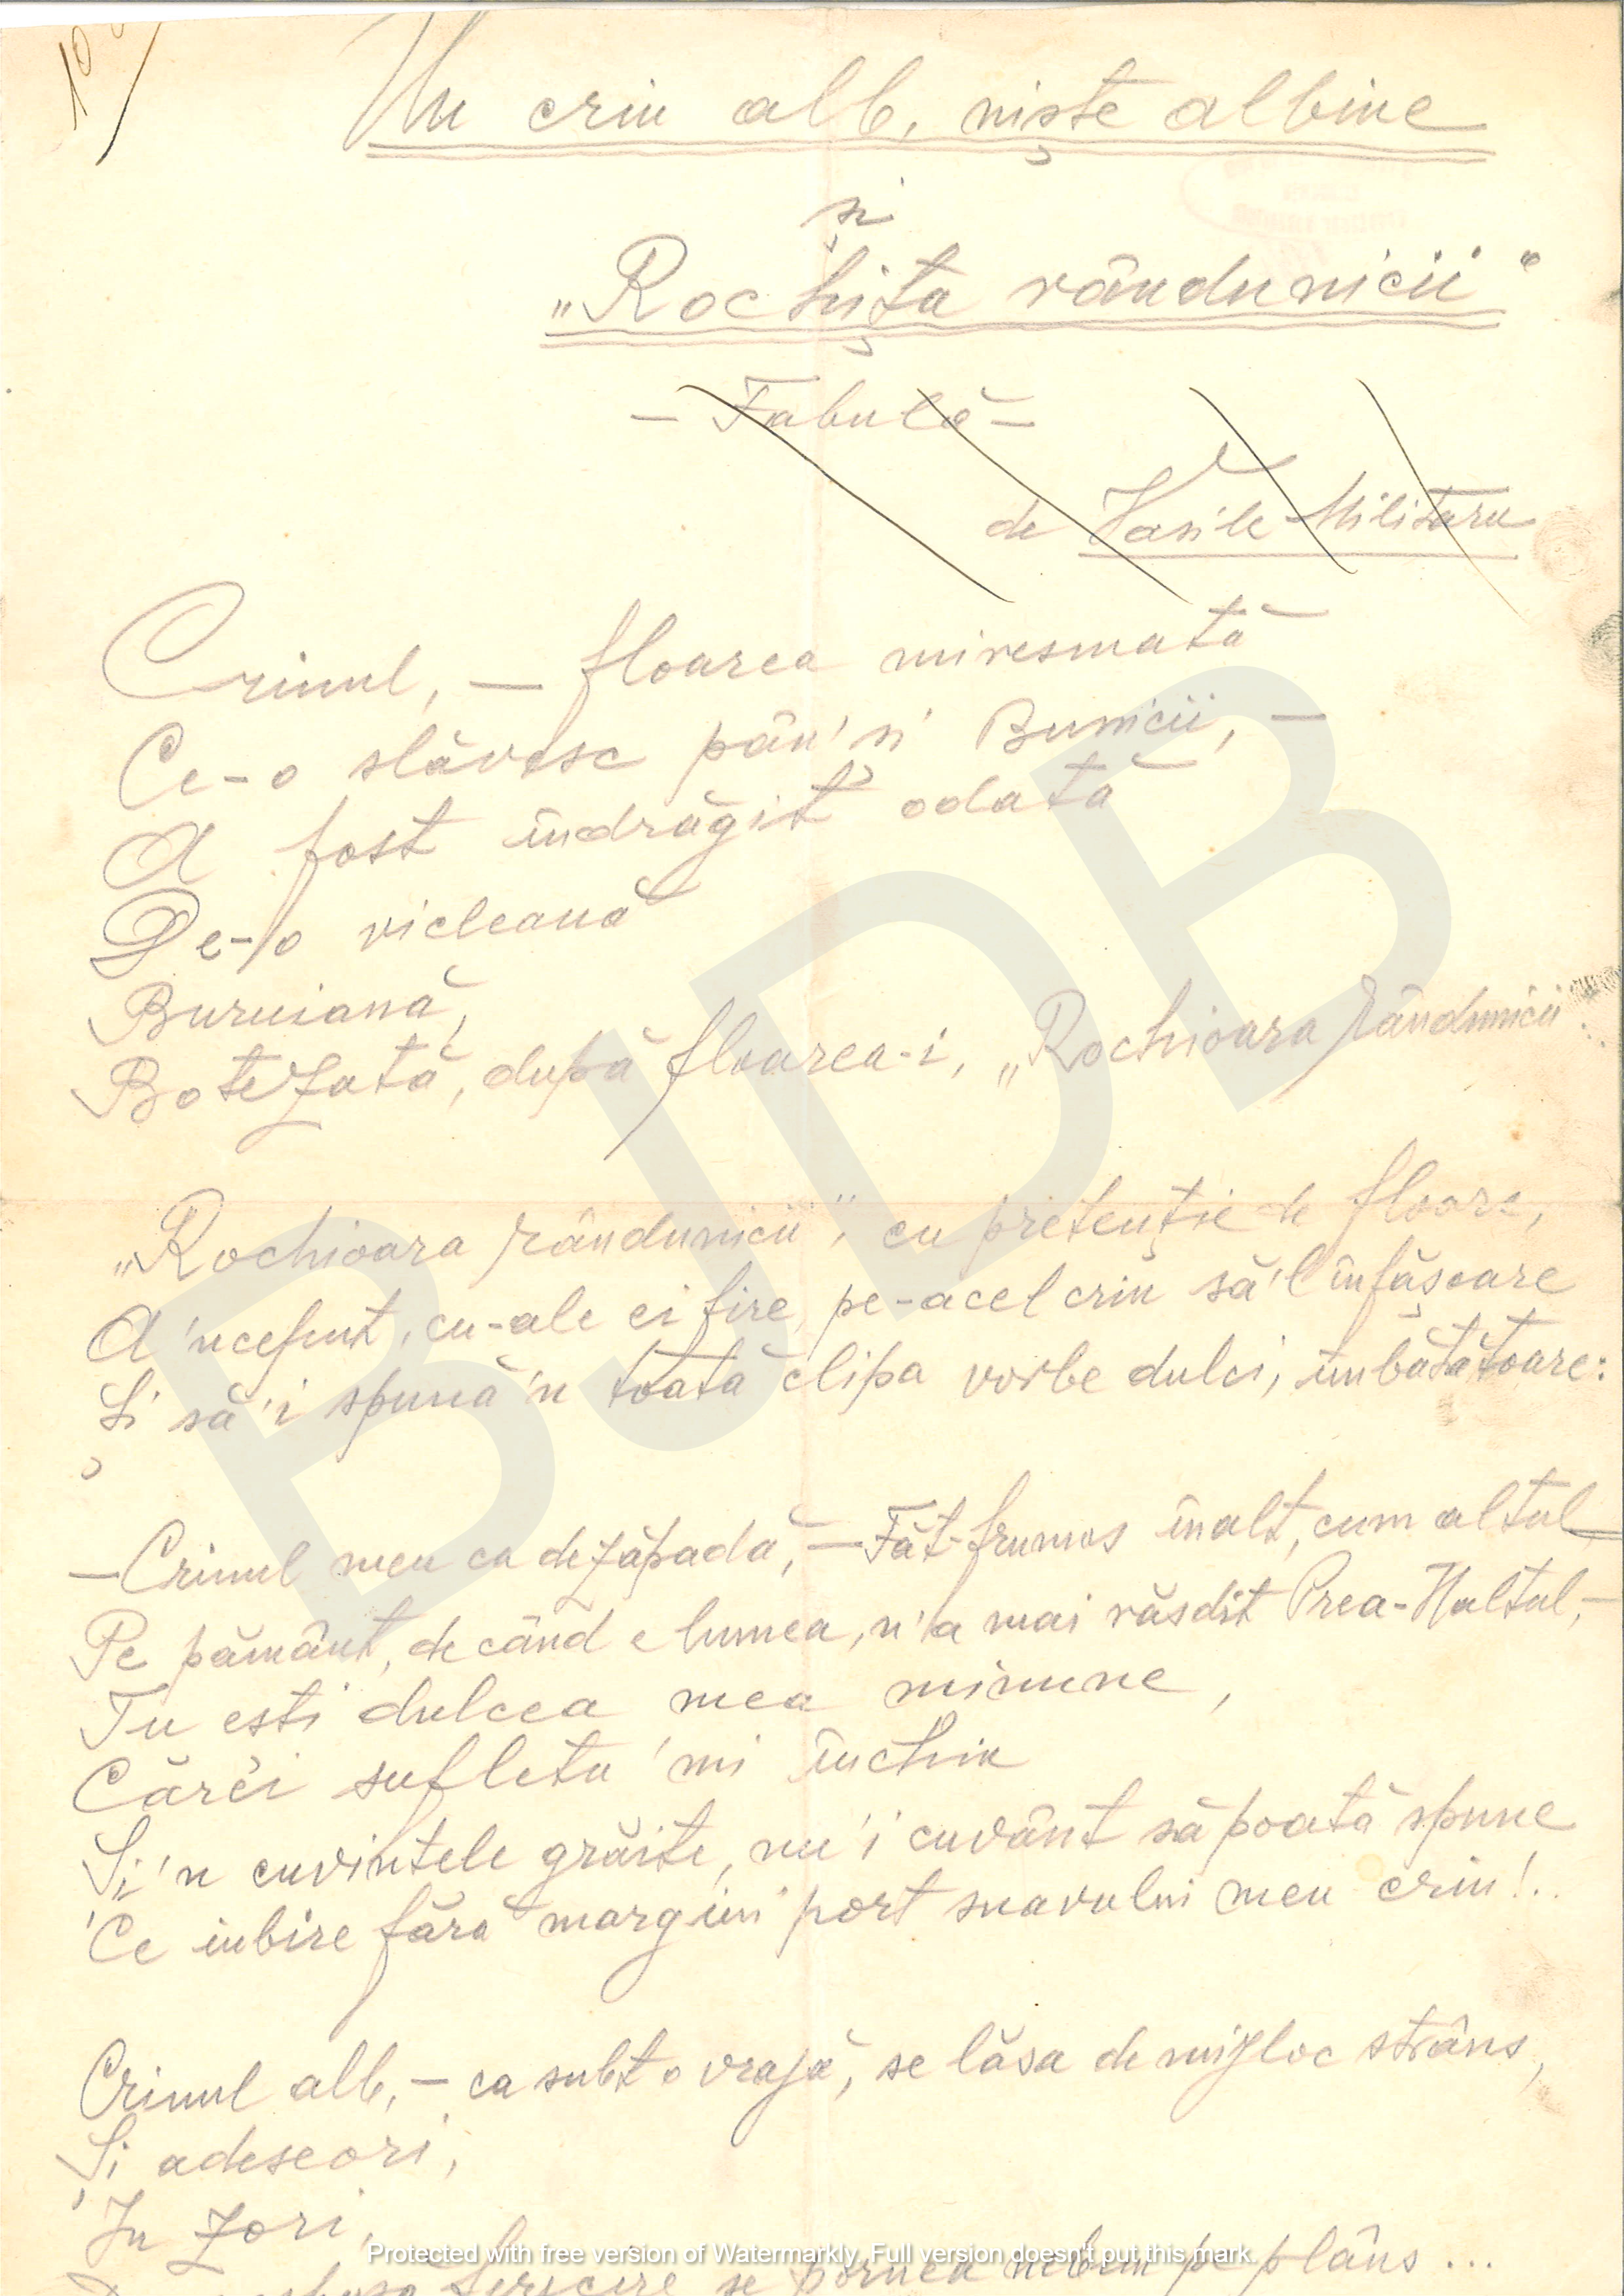 10
Un crin alb, niște albine
și
„Rochița rândunicii"
— Fabulă —
de Vasile Militaru
Crinul, — floarea miresmată
Ce-o slăvesc pân' și Bunicii, —
A fost îndrăgit odată
De-o vicleană
Buruiană,
Botezată, după floarea-i, „Rochioara rândunicii".
„Rochioara rândunicii", cu pretenție de floare,
A 'nceput, cu-ale ei fire, pe-acel crin să'l înfășoare
Și să'i spună 'n toată clipa vorbe dulci, îmbătătoare:
— Crinul meu ca de zăpadă, — Făt-frumos înalt, cum altul
Pe pământ, de când e lumea, n'a mai răsdit Prea-Naltul, —
Tu ești dulcea mea minune,
Cărei sufletu 'mi închin
Și 'n cuvintele grăite, nu'i cuvânt să poată spune
Ce iubire fără margini port suavului meu crin!..
Crinul alb, — ca subt o vrajă, se lăsa de mijloc strâns,
Și adeseori,
In zori,
fericire se pornea nebun pe plâns ...
BJDB
Protected with free version of Watermarkly. Full version doesn't put this mark.